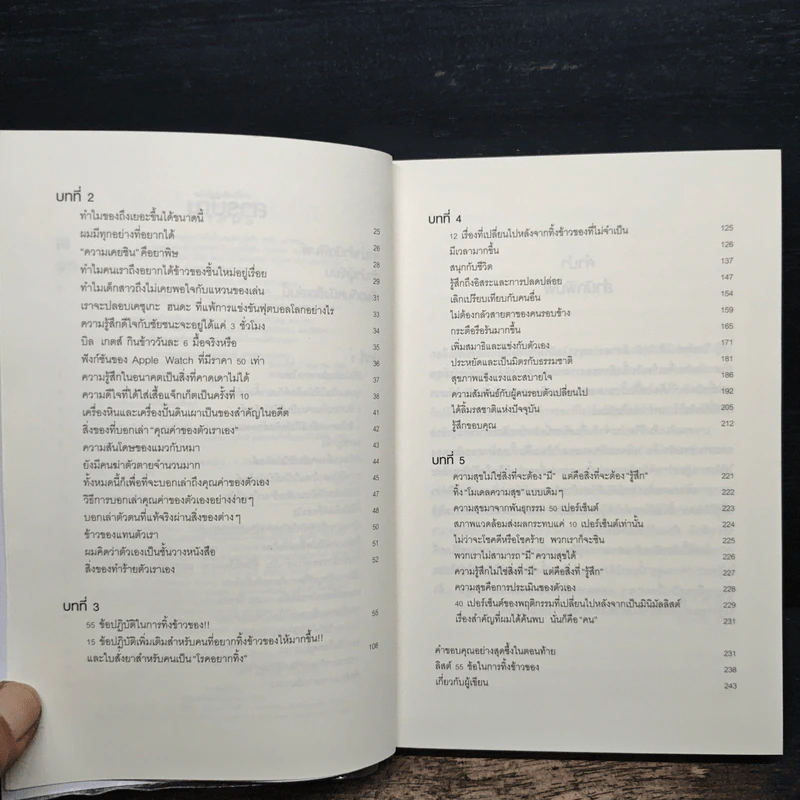 บทที่ 2
ทำไมของถึงเยอะขึ้นได้ขนาดนี้ 25
ผมมีทุกอย่างที่อยากได้ 26
"ความเคยชิน" คือยาพิษ 28
ทำไมคนเราถึงอยากได้ข้าวของชิ้นใหม่อยู่เรื่อย 29
ทำไมเด็กสาวถึงไม่เคยพอใจกับแหวนของเล่น 31
เราจะปลอบเคซุเกะ ฮนดะ ที่แพ้การแข่งขันฟุตบอลโลกอย่างไร 33
ความรู้สึกดีใจกับชัยชนะจะอยู่ได้แค่ 3 ชั่วโมง 34
บิล เกตส์ กินข้าววันละ 6 มื้อจริงหรือ 35
ฟังก์ชันของ Apple Watch ที่มีราคา 50 เท่า 36
ความรู้สึกในอนาคตเป็นสิ่งที่คาดเดาไม่ได้ 37
ความดีใจที่ได้ใส่เสื้อแจ็กเก็ตเป็นครั้งที่ 10 38
เครื่องหินและเครื่องปั้นดินเผาเป็นของสำคัญในอดีต 41
สิ่งของที่บอกเล่า "คุณค่าของตัวเราเอง" 42
ความสันโดษของแมวกับหมา 43
ยังมีคนฆ่าตัวตายจำนวนมาก 44
ทั้งหมดนี้ก็เพื่อที่จะบอกเล่าถึงคุณค่าของตัวเอง 45
วิธีการบอกเล่าคุณค่าของตัวเองอย่างง่ายๆ 46
บอกเล่าตัวตนที่แท้จริงผ่านสิ่งของต่างๆ 47
ข้าวของแทนตัวเรา 50
ผมคิดว่าตัวเองเป็นชั้นวางหนังสือ 51
สิ่งของทำร้ายตัวเราเอง 52
บทที่ 3
55 ข้อปฏิบัติในการทิ้งข้าวของ!! 55
15 ข้อปฏิบัติเพิ่มเติมสำหรับคนที่อยากทิ้งข้าวของให้มากขึ้น!!
และใบสั่งยาสำหรับคนเป็น "โรคอยากทิ้ง" 106
บทที่ 4
12 เรื่องที่เปลี่ยนไปหลังจากทิ้งข้าวของที่ไม่จำเป็น 125
มีเวลามากขึ้น 126
สนุกกับชีวิต 137
รู้สึกถึงอิสระและการปลดปล่อย 147
เลิกเปรียบเทียบกับคนอื่น 154
ไม่ต้องกลัวสายตาของคนรอบข้าง 159
กระตือรือร้นมากขึ้น 165
เพิ่มสมาธิและแข่งกับตัวเอง 171
ประหยัดและเป็นมิตรกับธรรมชาติ 181
สุขภาพแข็งแรงและสบายใจ 186
ความสัมพันธ์กับผู้คนรอบตัวเปลี่ยนไป 192
ได้ลิ้มรสชาติแห่งปัจจุบัน 205
รู้สึกขอบคุณ 212
บทที่ 5
ความสุขไม่ใช่สิ่งที่จะต้อง "มี" แต่คือสิ่งที่จะต้อง "รู้สึก" 221
ทิ้ง "โมเดลความสุข" แบบเดิมๆ 222
ความสุขมาจากพันธุกรรม 50 เปอร์เซ็นต์ 223
สภาพแวดล้อมส่งผลกระทบแค่ 10 เปอร์เซ็นต์เท่านั้น 224
ไม่ว่าจะโชคดีหรือโชคร้าย พวกเราก็จะชิน 225
พวกเราไม่สามารถ "มี" ความสุขได้ 226
ความรู้สึกไม่ใช่สิ่งที่ "มี" แต่คือสิ่งที่ "รู้สึก" 227
ความสุขคือการประเมินของตัวเอง 228
40 เปอร์เซ็นต์ของพฤติกรรมที่เปลี่ยนไปหลังจากเป็นมินิมัลลิสต์ 229
เรื่องสำคัญที่ผมได้ค้นพบ นั่นก็คือ "คน" 231
คำขอบคุณอย่างสุดซึ้งในตอนท้าย 231
ลิสต์ 55 ข้อในการทิ้งข้าวของ 238
เกี่ยวกับผู้เขียน 243